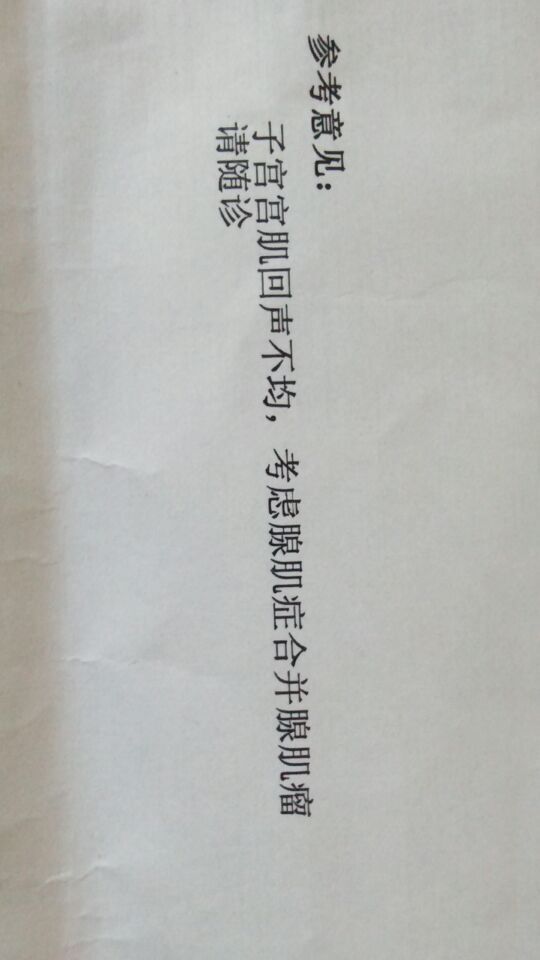 参考意见：
子宫宫肌回声不均，考虑腺肌症合并腺肌瘤
请随诊